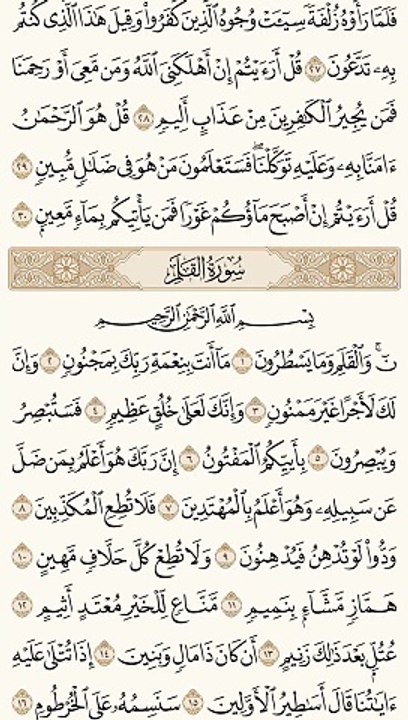 فَلَمَّا رَأَوْهُ زُلْفَةً سِيٓـَٔتْ وُجُوهُ ٱلَّذِينَ كَفَرُوا۟ وَقِيلَ هَٰذَا ٱلَّذِى كُنتُم
بِهِۦ تَدَّعُونَ ٢٧ قُلْ أَرَءَيْتُمْ إِنْ أَهْلَكَنِىَ ٱللَّهُ وَمَن مَّعِىَ أَوْ رَحِمَنَا
فَمَن يُجِيرُ ٱلْكَٰفِرِينَ مِنْ عَذَابٍ أَلِيمٍ ٢٨ قُلْ هُوَ ٱلرَّحْمَٰنُ
ءَامَنَّا بِهِۦ وَعَلَيْهِ تَوَكَّلْنَا ۖ فَسَتَعْلَمُونَ مَنْ هُوَ فِى ضَلَٰلٍ مُّبِينٍ ٢٩
قُلْ أَرَءَيْتُمْ إِنْ أَصْبَحَ مَآؤُكُمْ غَوْرًا فَمَن يَأْتِيكُم بِمَآءٍ مَّعِينٍۭ ٣٠
سُورَةُ القَلَمِ
بِسْمِ ٱللَّهِ ٱلرَّحْمَٰنِ ٱلرَّحِيمِ
نٓ ۚ وَٱلْقَلَمِ وَمَا يَسْطُرُونَ ١ مَآ أَنتَ بِنِعْمَةِ رَبِّكَ بِمَجْنُونٍ ٢ وَإِنَّ
لَكَ لَأَجْرًا غَيْرَ مَمْنُونٍ ٣ وَإِنَّكَ لَعَلَىٰ خُلُقٍ عَظِيمٍ ٤ فَسَتُبْصِرُ
وَيُبْصِرُونَ ٥ بِأَييِّكُمُ ٱلْمَفْتُونُ ٦ إِنَّ رَبَّكَ هُوَ أَعْلَمُ بِمَن ضَلَّ
عَن سَبِيلِهِۦ وَهُوَ أَعْلَمُ بِٱلْمُهْتَدِينَ ٧ فَلَا تُطِعِ ٱلْمُكَذِّبِينَ ٨
وَدُّوا۟ لَوْ تُدْهِنُ فَيُدْهِنُونَ ٩ وَلَا تُطِعْ كُلَّ حَلَّافٍ مَّهِينٍ ١٠
هَمَّازٍ مَّشَّآءٍۭ بِنَمِيمٍ ١١ مَّنَّاعٍ لِّلْخَيْرِ مُعْتَدٍ أَثِيمٍ ١٢
عُتُلٍّۭ بَعْدَ ذَٰلِكَ زَنِيمٍ ١٣ أَن كَانَ ذَا مَالٍ وَبَنِينَ ١٤ إِذَا تُتْلَىٰ عَلَيْهِ
ءَايَٰتُنَا قَالَ أَسَٰطِيرُ ٱلْأَوَّلِينَ ١٥ سَنَسِمُهُۥ عَلَى ٱلْخُرْطُومِ ١٦